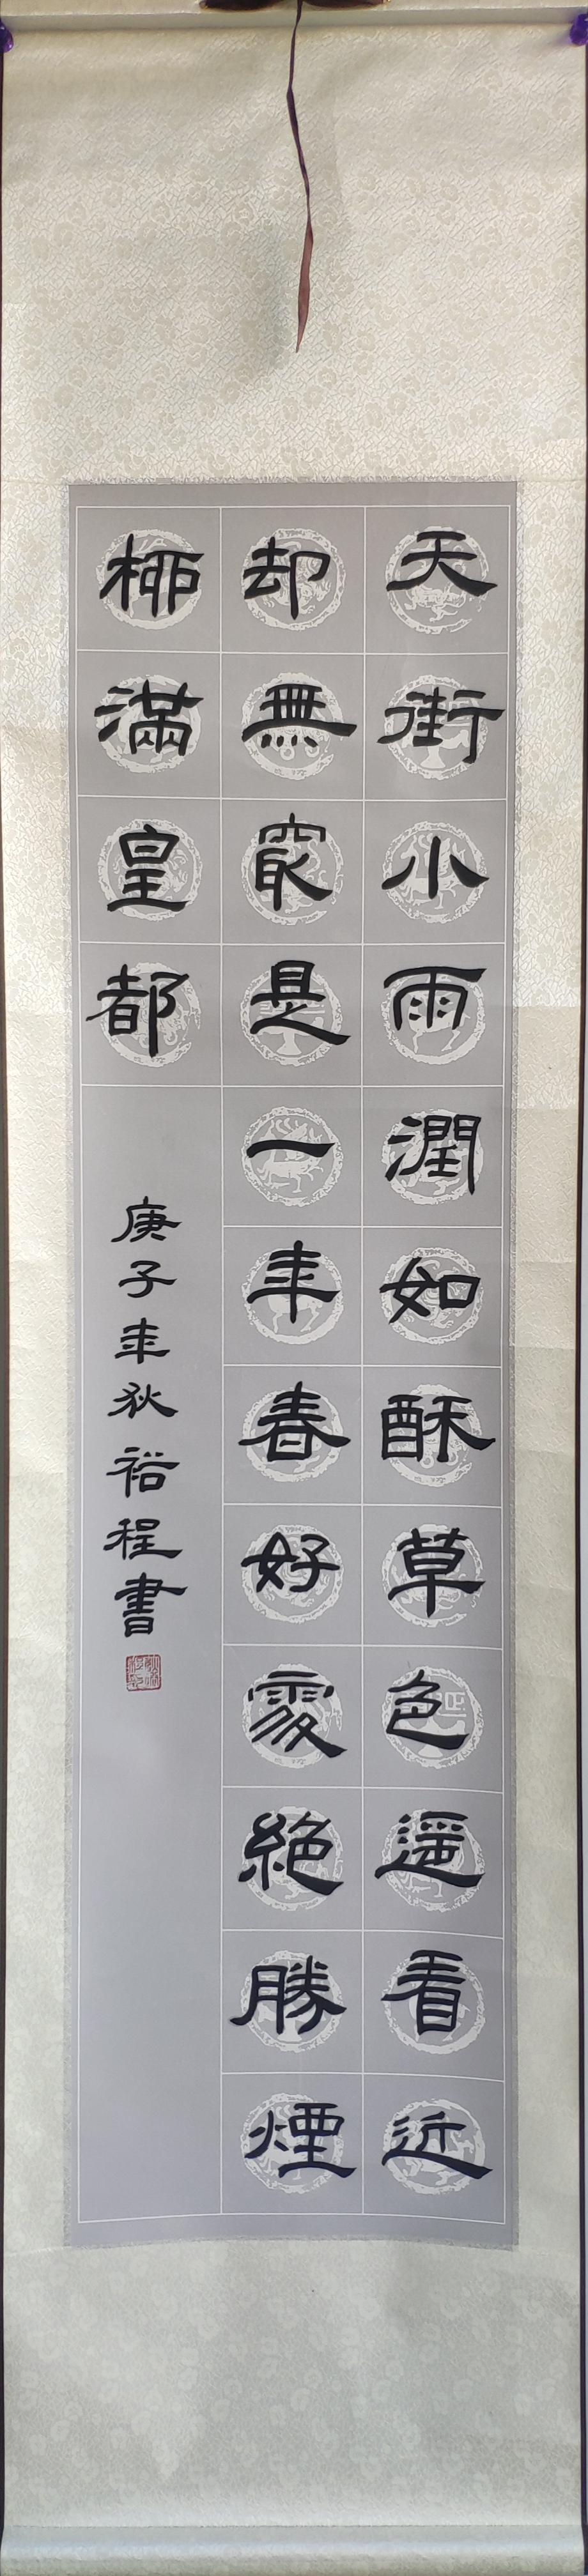 天街小雨潤如酥草色遥看近
却無最是一年春好處絶勝煙
柳滿皇都
庚子年狄裕程書